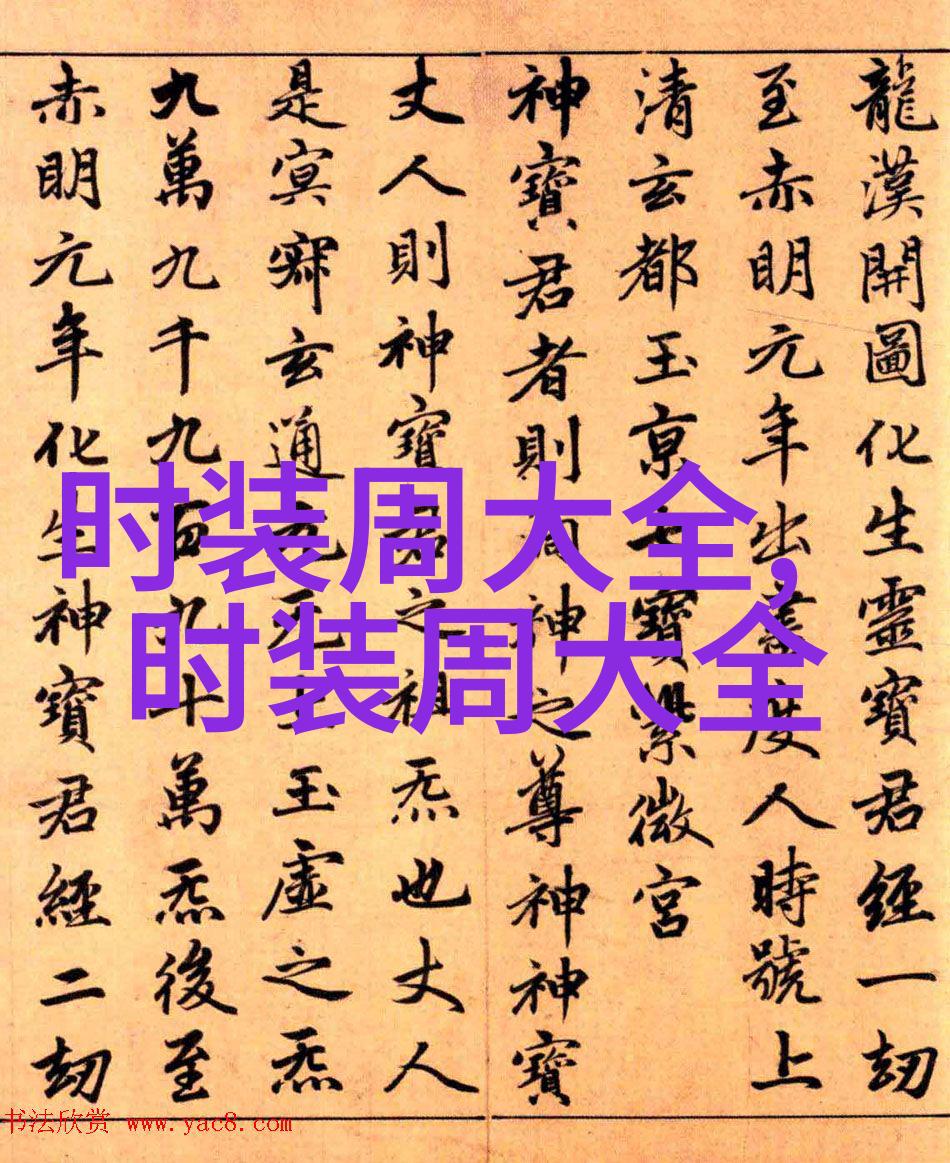 龍漢開圖化生靈寶君經一劫
至赤明元年出書度人時號上
清玄都玉京七寶紫微宮
神寶君者則洞神之尊神神寶
丈人則神寶君之祖炁也丈人
是冥寂玄通元无上玉虛之炁
九萬九千九百九十萬炁後至
赤明元年化生神寶君經二劫
时装周大全,
时装周大全
书法欣赏 www.yac8.com